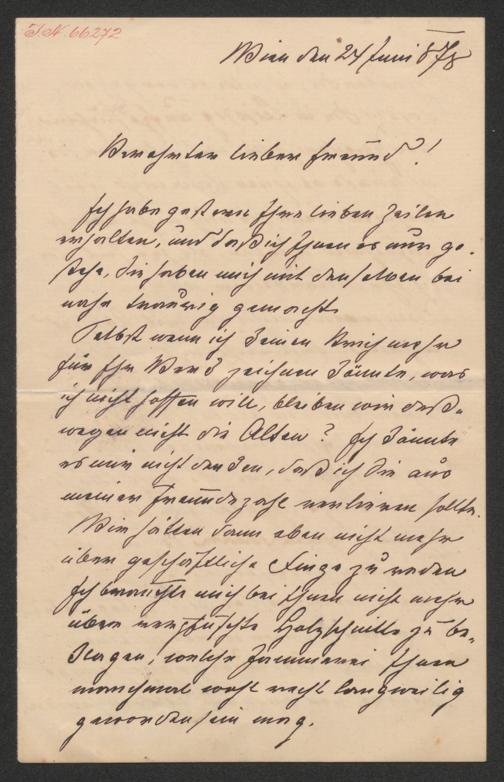 I.N. 66272
Wien den 24 Juni 878
Verehrter lieber Freund!
Ich habe gestern Ihre lieben Zeilen
erhalten, und daß ich Ihnen es nur ge-
stehe. Sie haben mich mit denselben bei
nahe traurig gemacht.
Selbst wenn ich keinen Strich mehr
für Ihr Werk zeichnen könnte, was
ich nicht hoffen will, bleiben wir deß-
wegen nicht die Alten? Ich könnte
es mir nicht denken, daß ich Sie aus
meiner Freundeszahl verlieren sollte.
Wir hätten dann eben nicht mehr
über geschäftliche Dinge zu reden
Ich brauchte mich bei Ihnen nicht mehr
über verpfuschte Holzschnitte zu be-
klagen, welche Jammerei Ihnen
manchmal wohl recht langweilig
geworden sein mag.